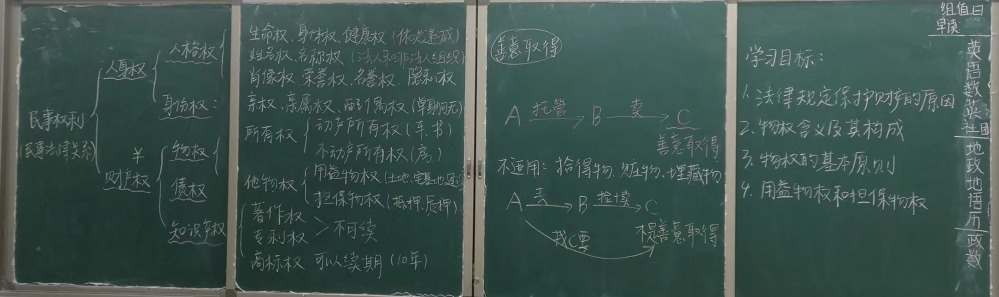 民事权利
(民事法律关系)
人身权
财产权
人格权
身份权:
物权
债权
知识产权
生命权、身体权、健康权(依次递减)
姓名权、名称权(法人和非法人组织)
肖像权、荣誉权、名誉权、隐私权
亲权、亲属权、配偶权
所有权
动产所有权(车、书)
不动产所有权(房)
他物权
用益物权(土地、宅基地
担保物权(抵押、质押)
著作权
专利权
>不可续
商标权 可以续期(10年)
善意取得
A 托管 B 卖 C
善意取得
不适用:拾得物、赃物、埋藏物
A 丢 B 捡续 C
找C要
不是善意取得
学习目标:
1.法律规定保护财产的原因
2.物权含义及其构成
3.物权的基本原则
4.用益物权和担保物权
组值日
早读
英
语
数
英
社团
地
政
地
悟
历
政
数